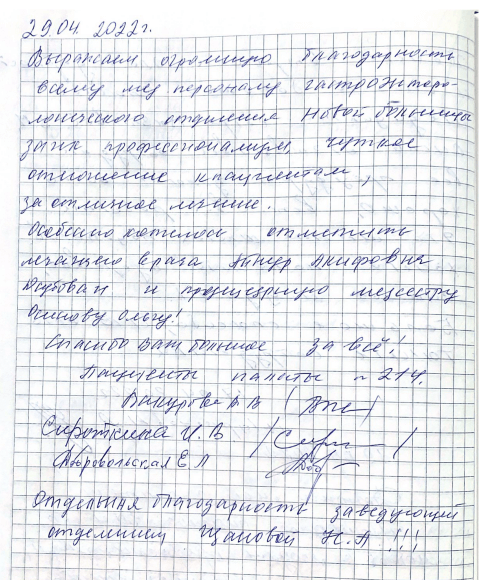 29.04.2022г.
Выражаем огромную благодарность
всему мед персоналу гастроэнтеро-
логического отделения Новой больницы
за их профессионализм, чуткое
отношение к пациентам,
за отличное лечение.
Особенно хотелось отметить
лечащего врача Айнур Акифовна
и процедурную медсестру
Осинову Ольгу!
Спасибо Вам большое за всё!
Пациенты палаты №214.
В В
Сироткина И. В
Добровольская Е Л
Отдельная благодарность заведующей
отделением Н.А !!!